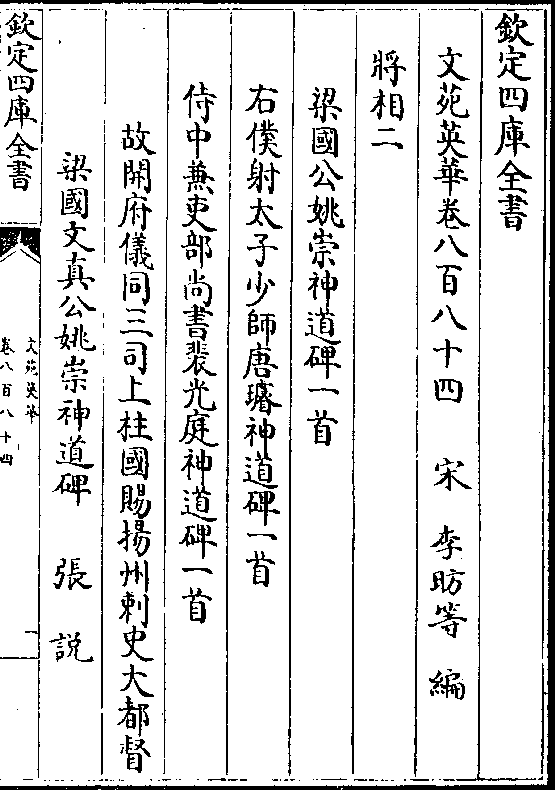 欽定四庫全書
文苑英華卷八百八十四 宋 李昉等 編
將相二
梁國公姚崇神道碑一首
右僕射太子少師唐璿神道碑一首
侍中兼吏部尚書裴光庭神道碑一首
故開府儀同三司上柱國賜揚州刺史大都督
梁國文真公姚崇神道碑 張說
欽定四庫全書
文苑英華
卷八百八十四
一